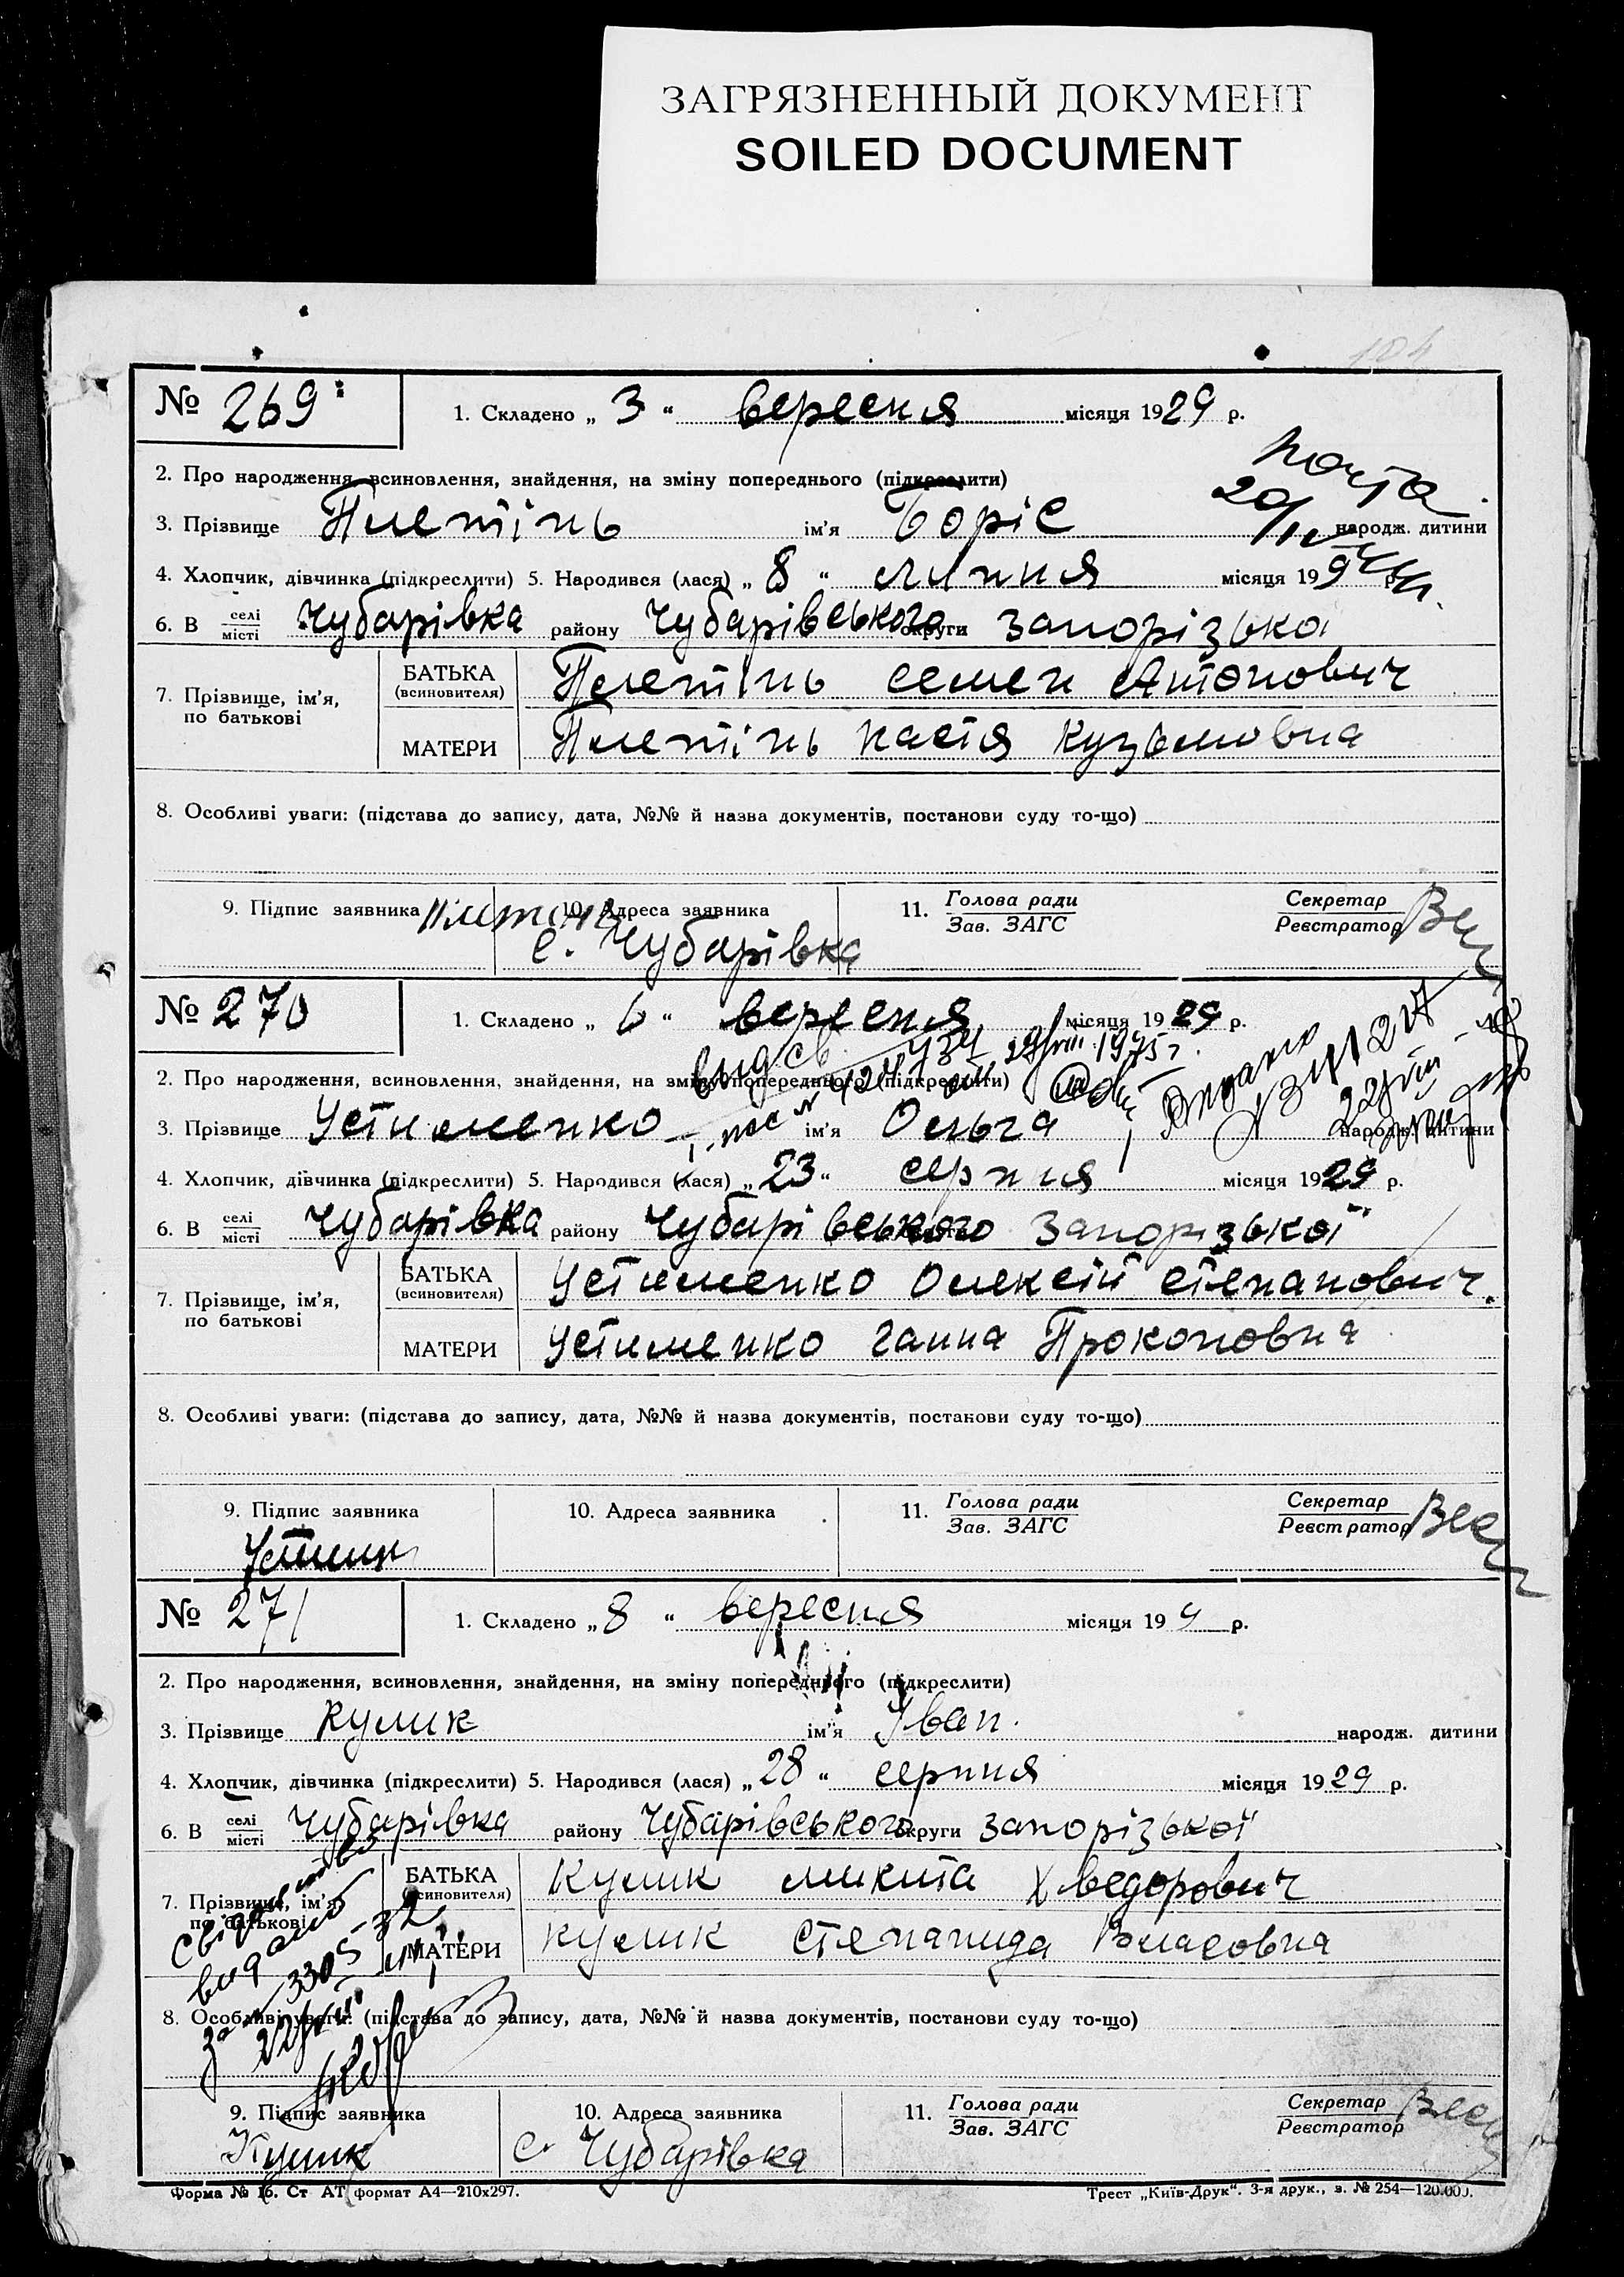 ЗАГРЯЗНЕННЫЙ ДОКУМЕНТ
SOILED DOCUMENT
104
№ 269
1. Складено „ 3 “ вересня місяця 1929 р.
2. Про народження, всиновлення, знайдення, на зміну попереднього (підкреслити)
3. Прізвище Плетінь ім'я Боріс народж. дитини
4. Хлопчик, дівчинка (підкреслити) 5. Народився (лася) „ 8 “ липня місяця 199 р.
6. В селі/місті Чубарівка району Чубарівського округи Запорізька
7. Прізвище, ім'я, по батькові
БАТЬКА (всиновителя) Плетінь Семен Антонович
МАТЕРИ Плетінь Настя Кузьмовна
8. Особливі уваги: (підстава до запису, дата, №№ й назва документів, постанови суду то-що)
9. Підпис заявника 10. Адреса заявника 11. Голова ради/Зав. ЗАГС Секретар/Реєстратор
с. Чубарівка
№ 270
1. Складено „ 6 “ вересня місяця 1929 р.
2. Про народження, всиновлення, знайдення, на зміну попереднього (підкреслити)
3. Прізвище Устименко ім'я Ольга народж. дитини
4. Хлопчик, дівчинка (підкреслити) 5. Народився (лася) „ 23 “ серпня місяця 1929 р.
6. В селі/місті Чубарівка району Чубарівського Запорізької
7. Прізвище, ім'я, по батькові
БАТЬКА (всиновителя) Устименко Олексій Степанович.
МАТЕРИ Устименко Ганна Прокоповна
8. Особливі уваги: (підстава до запису, дата, №№ й назва документів, постанови суду то-що)
9. Підпис заявника 10. Адреса заявника 11. Голова ради/Зав. ЗАГС Секретар/Реєстратор
№ 271
1. Складено „ 8 “ вересня місяця 199 р.
2. Про народження, всиновлення, знайдення, на зміну попереднього (підкреслити)
3. Прізвище Кулик ім'я Іван. народж. дитини
4. Хлопчик, дівчинка (підкреслити) 5. Народився (лася) „ 28 “ серпня місяця 1929 р.
6. В селі/місті Чубарівка району Чубарівського округи Запорізької
7. Прізвище, ім'я, по батькові
БАТЬКА (всиновителя) Кулик Микита Хведорович
МАТЕРИ Кулик Степанида Власовна
8. Особливі уваги: (підстава до запису, дата, №№ й назва документів, постанови суду то-що)
9. Підпис заявника 10. Адреса заявника 11. Голова ради/Зав. ЗАГС Секретар/Реєстратор
Кулик с. Чубарівка
Форма № 16. Ст АТ формат А4—210х297.
Трест „Київ-Друк“. 3-я друк., з. № 254—120.000.